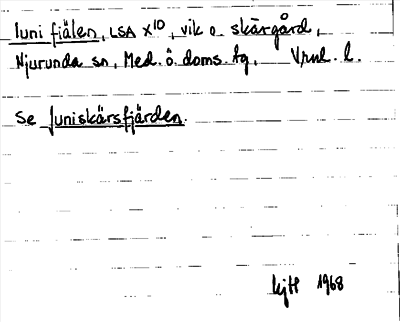 Iuni fiälen, LSA X10, vik o. skärgård,
Njurunda sn, Med. ö. doms. tg, Vrml. l.
Se Juniskärsfjärden.
1968